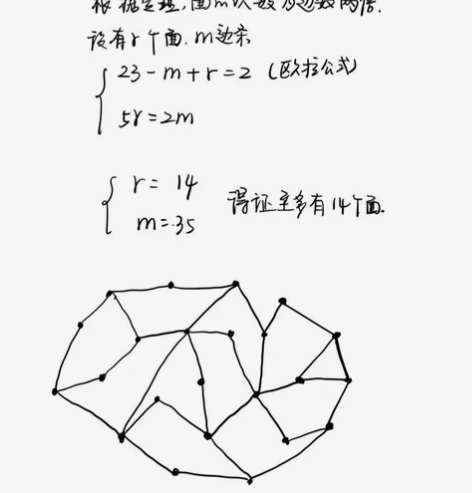 根据定理,面的次数为边数两倍.
设有r个面.m边条
23-m+r=2 (欧拉公式)
5r=2m
r=14
m=35 得证至多有14个面.